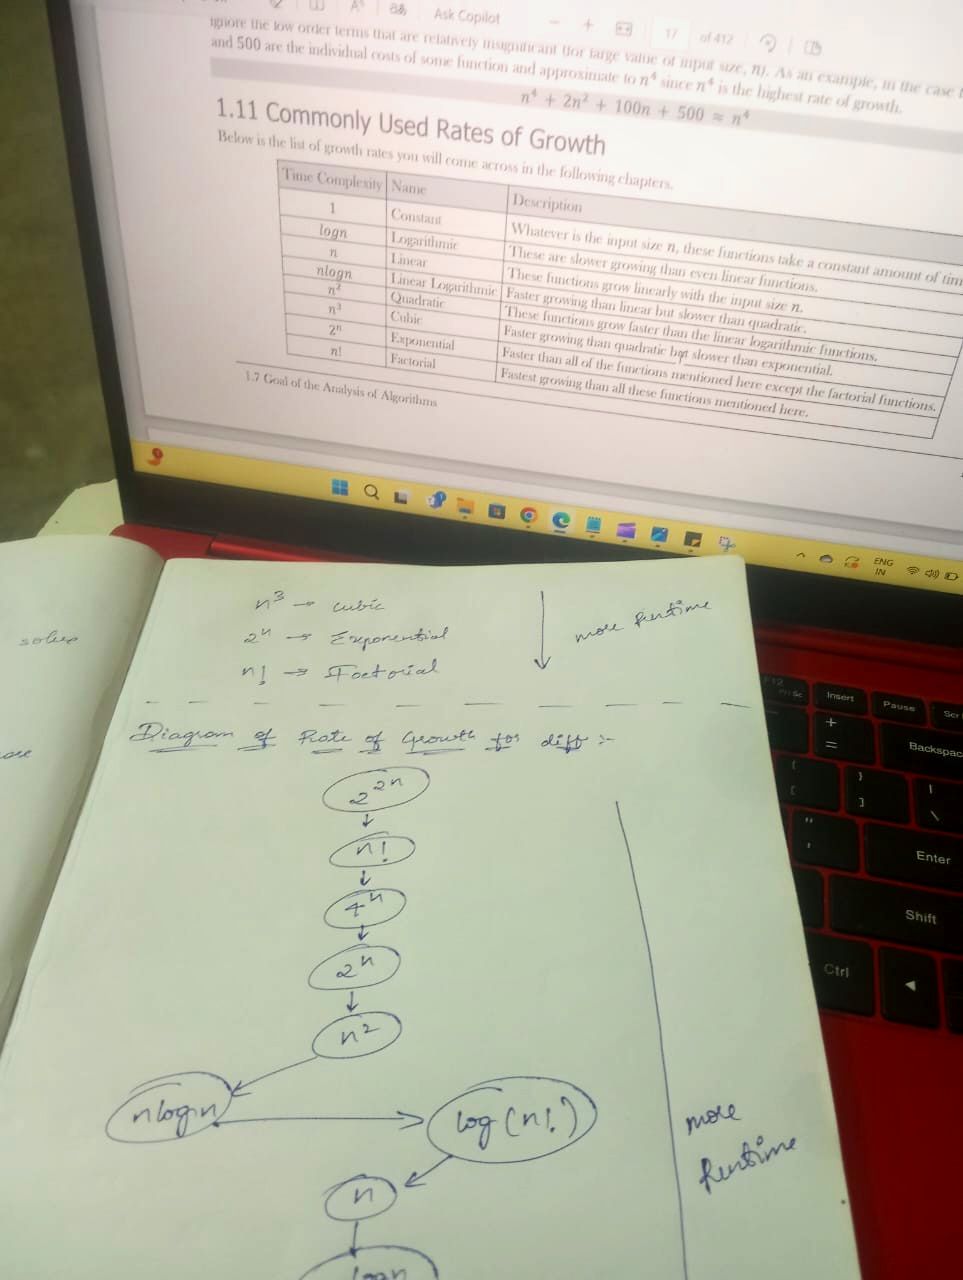 Ask Copilot
17 of 412
ignore the low order terms that are relatively insignificant (for large value of input size, n). As an example, in the case
and 500 are the individual costs of some function and approximate to n⁴ since n⁴ is the highest rate of growth.
n⁴ + 2n² + 100n + 500 ≈ n⁴
1.11 Commonly Used Rates of Growth
Below is the list of growth rates you will come across in the following chapters.
Time Complexity Name Description
1 Constant Whatever is the input size n, these functions take a constant amount of tim
logn Logarithmic These are slower growing than even linear functions.
n Linear These functions grow linearly with the input size n.
nlogn Linear Logarithmic Faster growing than linear but slower than quadratic.
n² Quadratic These functions grow faster than the linear logarithmic functions.
n³ Cubic Faster growing than quadratic but slower than exponential.
2ⁿ Exponential Faster than all of the functions mentioned here except the factorial functions.
n! Factorial Fastest growing than all these functions mentioned here.
1.7 Goal of the Analysis of Algorithms
ENG
IN
n³ → cubic
2ⁿ → Exponential
n! → Factorial
more runtime
Diagram of Rate of Growth for diff :-
2²ⁿ
n!
4ⁿ
2ⁿ
n²
nlogn
log(n!)
n
logn
more
runtime
solve
F12
Insert
Pause
Scr
+
=
Backspac
{
[
}
]
|
\
"
'
Enter
Shift
Ctrl